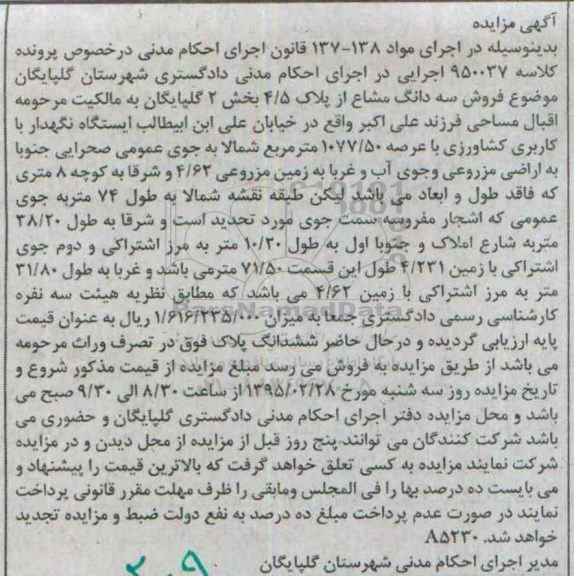 آگهی مزایده
بدینوسیله در اجرای مواد ۱۳۸-۱۳۷ قانون اجرای احکام مدنی درخصوص پرونده
کلاسه ۹۵۰۰۳۷ اجرایی در اجرای احکام مدنی دادگستری شهرستان گلپایگان
موضوع فروش سه دانگ مشاع از پلاک ۴/۵ بخش ۲ گلپایگان به مالکیت مرحومه
اقبال مساحی فرزند علی اکبر واقع در خیابان علی ابن ابیطالب ایستگاه نگهدار با
کاربری کشاورزی با عرصه ۱۰۷۷/۵۰ مترمربع شمالا به جوی عمومی صحرایی جنوبا
به اراضی مزروعی وجوی آب و غربا به زمین مزروعی ۴/۶۲ و شرقا به کوچه ۸ متری
که فاقد طول و ابعاد می باشد لیکن طبقه نقشه شمالا به طول ۷۴ متربه جوی
عمومی که اشجار مفروسه سمت جوی مورد تحدید است و شرقا به طول ۳۸/۲۰
متربه شارع املاک و جنوبا اول به طول ۱۰/۲۰ متر به مرز اشتراکی و دوم جوی
اشتراکی با زمین ۴/۲۳۱ طول این قسمت ۷۱/۵۰ مترمی باشد و غربا به طول ۳۱/۸۰
متر به مرز اشتراکی با زمین ۴/۶۲ می باشد که مطابق نظریه هیئت سه نفره
کارشناسی رسمی دادگستری جمعا به میزان ۱/۶۱۶/۲۳۵/۰۰۰ ریال به عنوان قیمت
پایه ارزیابی گردیده و درحال حاضر ششدانگ پلاک فوق در تصرف وراث مرحومه
می باشد از طریق مزایده به فروش می رسد مبلغ مزایده از قیمت مذکور شروع و
تاریخ مزایده روز سه شنبه مورخ ۱۳۹۵/۰۲/۲۸ از ساعت ۸/۳۰ الی ۹/۳۰ صبح می
باشد و محل مزایده دفتر اجرای احکام مدنی دادگستری گلپایگان و حضوری می
باشد شرکت کنندگان می توانند پنج روز قبل از مزایده از محل دیدن و در مزایده
شرکت نمایند مزایده به کسی تعلق خواهد گرفت که بالاترین قیمت را پیشنهاد و
می بایست ده درصد بها را فی المجلس ومابقی را ظرف مهلت مقرر قانونی پرداخت
نمایند در صورت عدم پرداخت مبلغ ده درصد به نفع دولت ضبط و مزایده تجدید
خواهد شد. A۵۲۳۰
مدیر اجرای احکام مدنی شهرستان گلپایگان